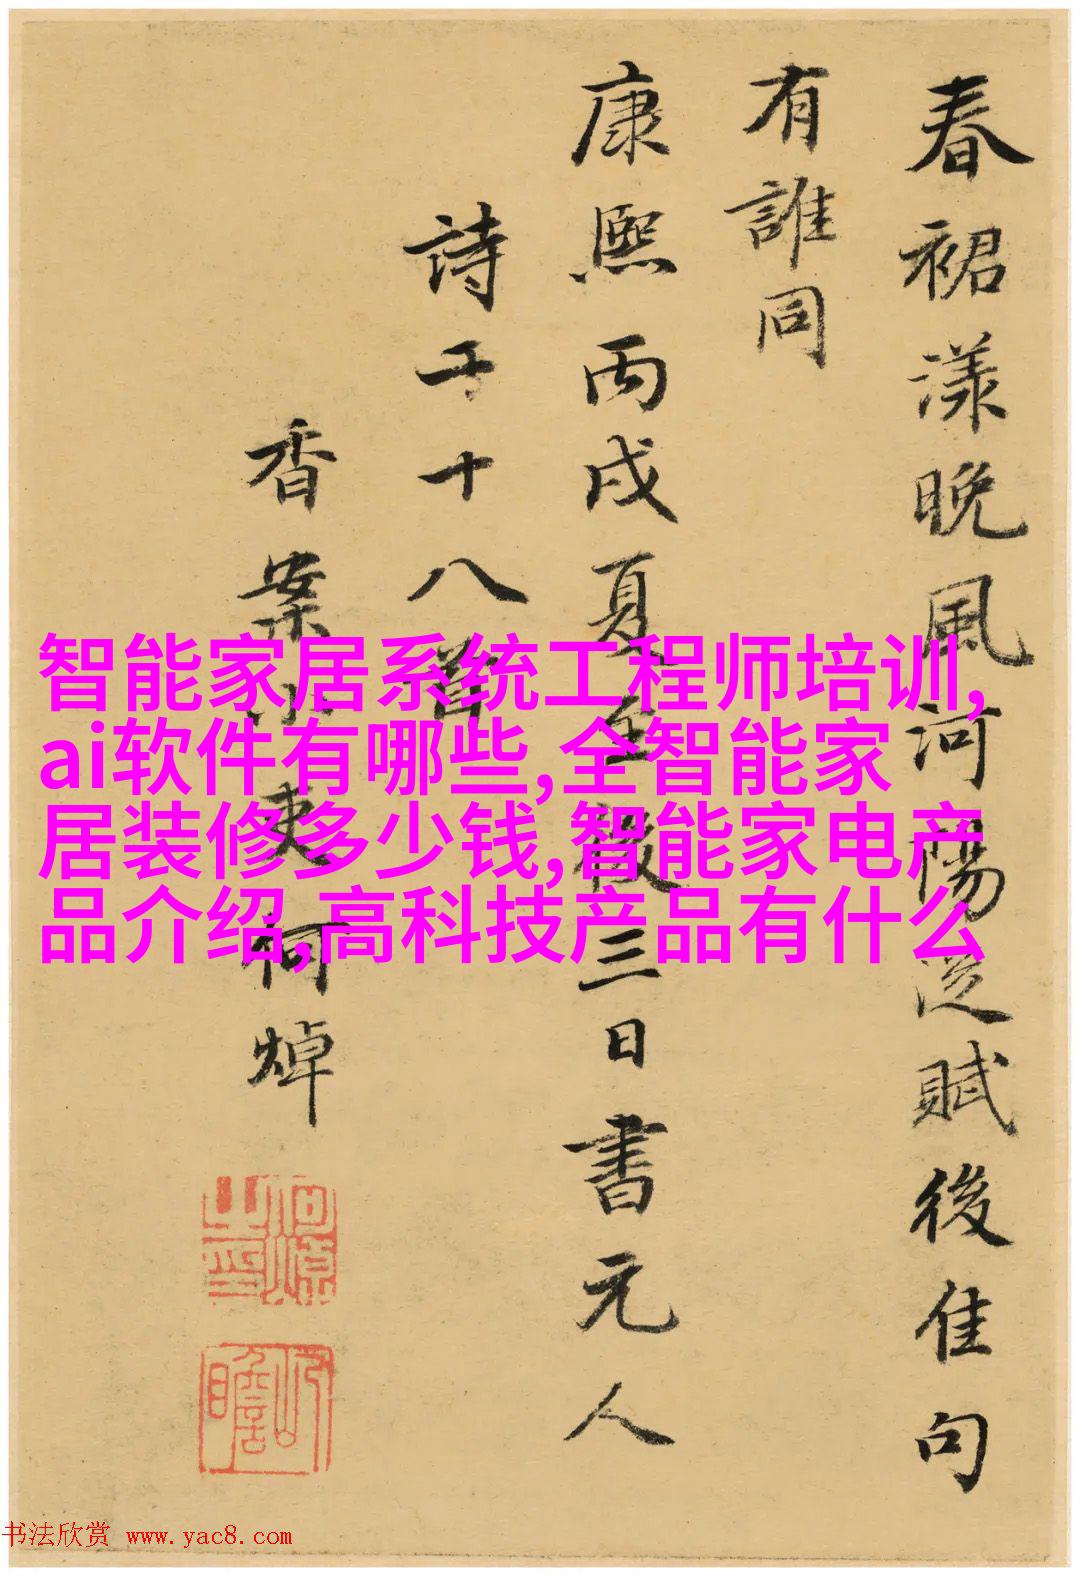 春裙漾晚風河陽賦後佳句
有誰同
康熙丙戌夏至後三日書元人
詩十八首
香案小吏何焯
何焯之印
屺瞻
智能家居系统工程师培训,
ai软件有哪些,全智能家
居装修多少钱,智能家电产
品介绍,高科技产品有什么
书法欣赏 www.yac8.com